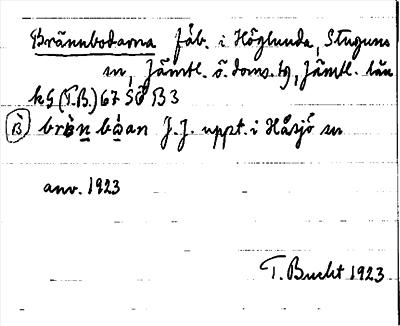 Brännbodarna Fäb. i Höglunda, Stuguns
sn, Jämtl. ö. doms. tg, Jämtl. län
kg (T.B.) 67 SO B3
B) bränn bòan J.J. uppt. i Håsjö sn
anv. 1923
T. Bucht 1923